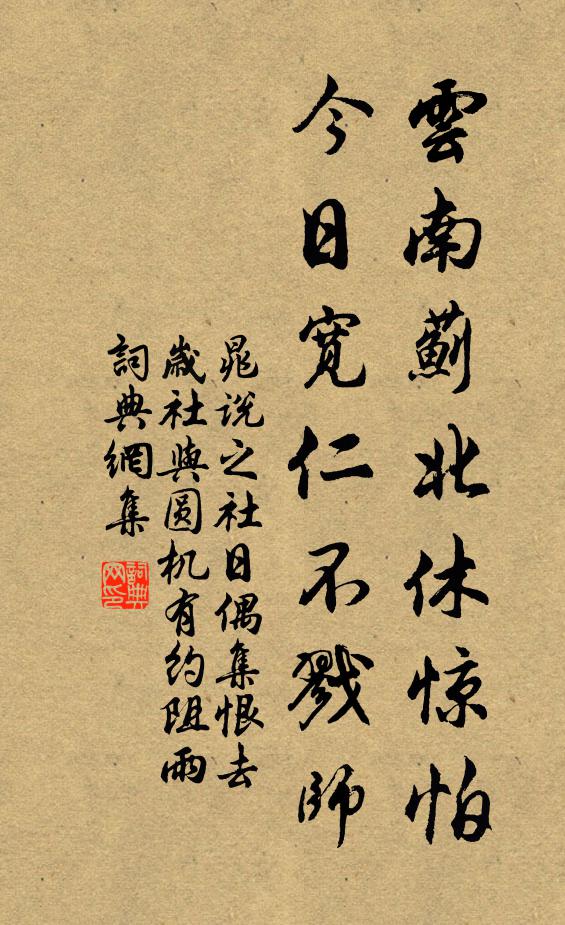 雲南薊北休惊怕
今日寛仁不戮師
晁説之社日偶集恨去
歲社與圆机有約阻雨
詞典網集
詞典网印